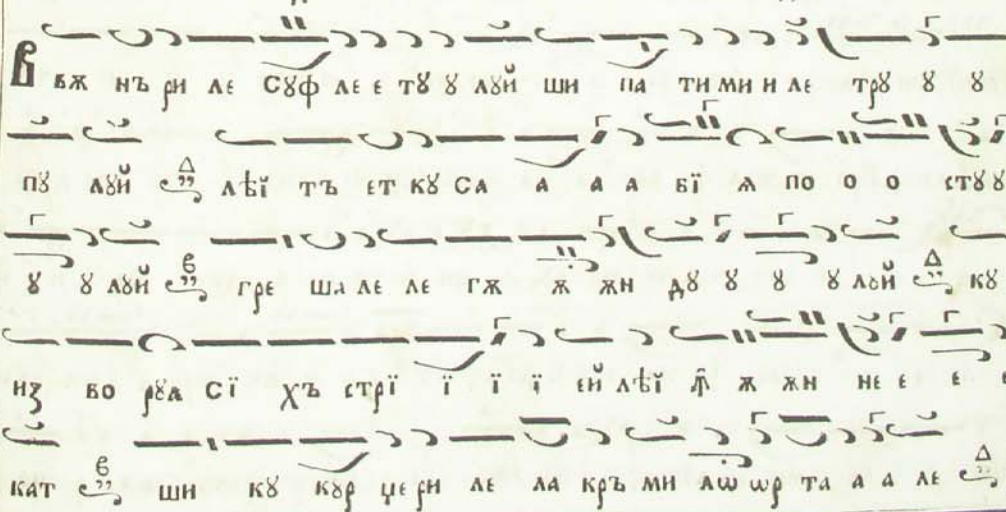 Ввѫ нъ ри ле сꙋф ле е тꙋ ꙋ лꙋй ши па ти ми и ле трꙋ ꙋ ꙋ
пꙋ лꙋй лѣї тъ ет кꙋ са а а а бї ѧ по о о стꙋꙋ
ꙋ ꙋ лꙋй гре ша ле ле гѫ ѫ ѫн дꙋ ꙋ ꙋ ꙋ лꙋй кꙋ
из во рꙋл сї хъ стрї ї ї ї ей лѣї ꙟ ѫ ѫн не е е е
кат ши кꙋ кꙋр цери ле ла кръ ми лѡ ѡр та а а ле